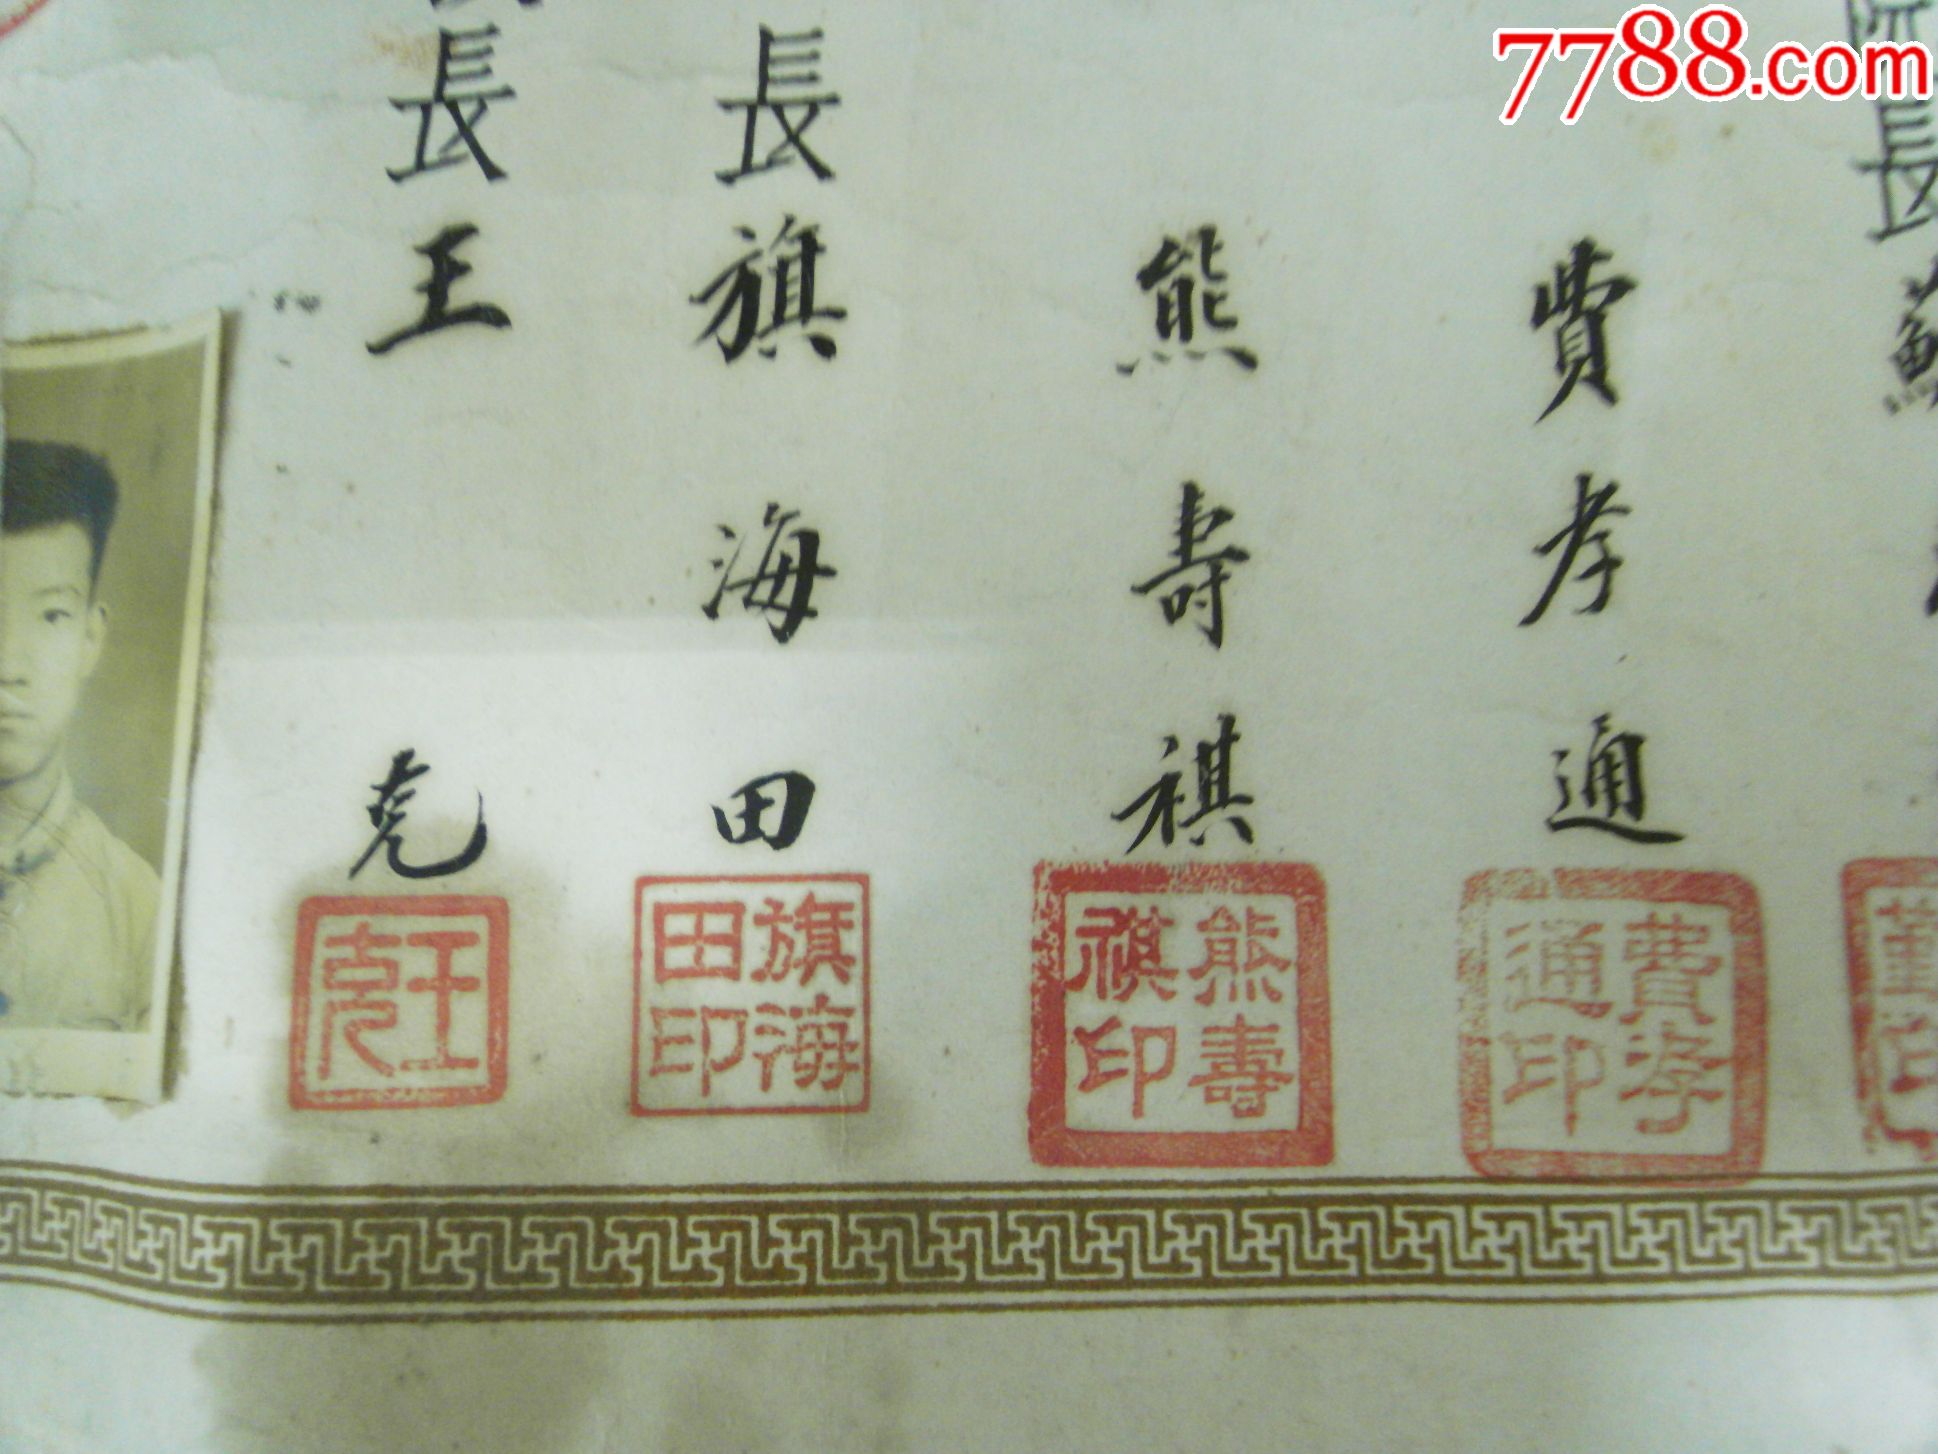 7788.com
長
蘇
費孝通
費孝通印
熊壽祺
熊壽祺印
長旗海田
旗海田印
長王克
王克